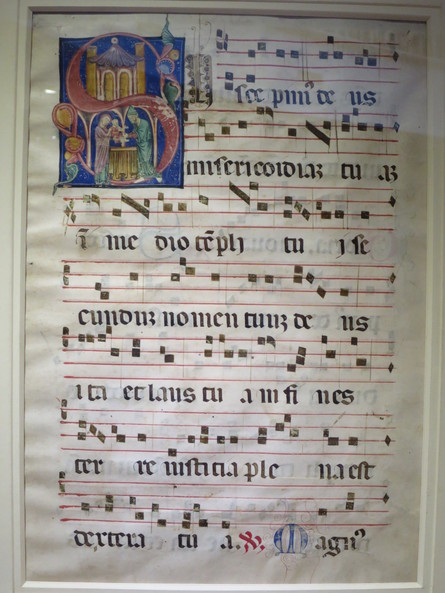 SUscepimꝰ de us
misericordiaz tu az
ī me dio tēpli tu i se
cunduz nomen tuuz de us
i ta et laus tu a in fi nes
ter re iusticia ple na est
dextera tu a. Magnꝰ